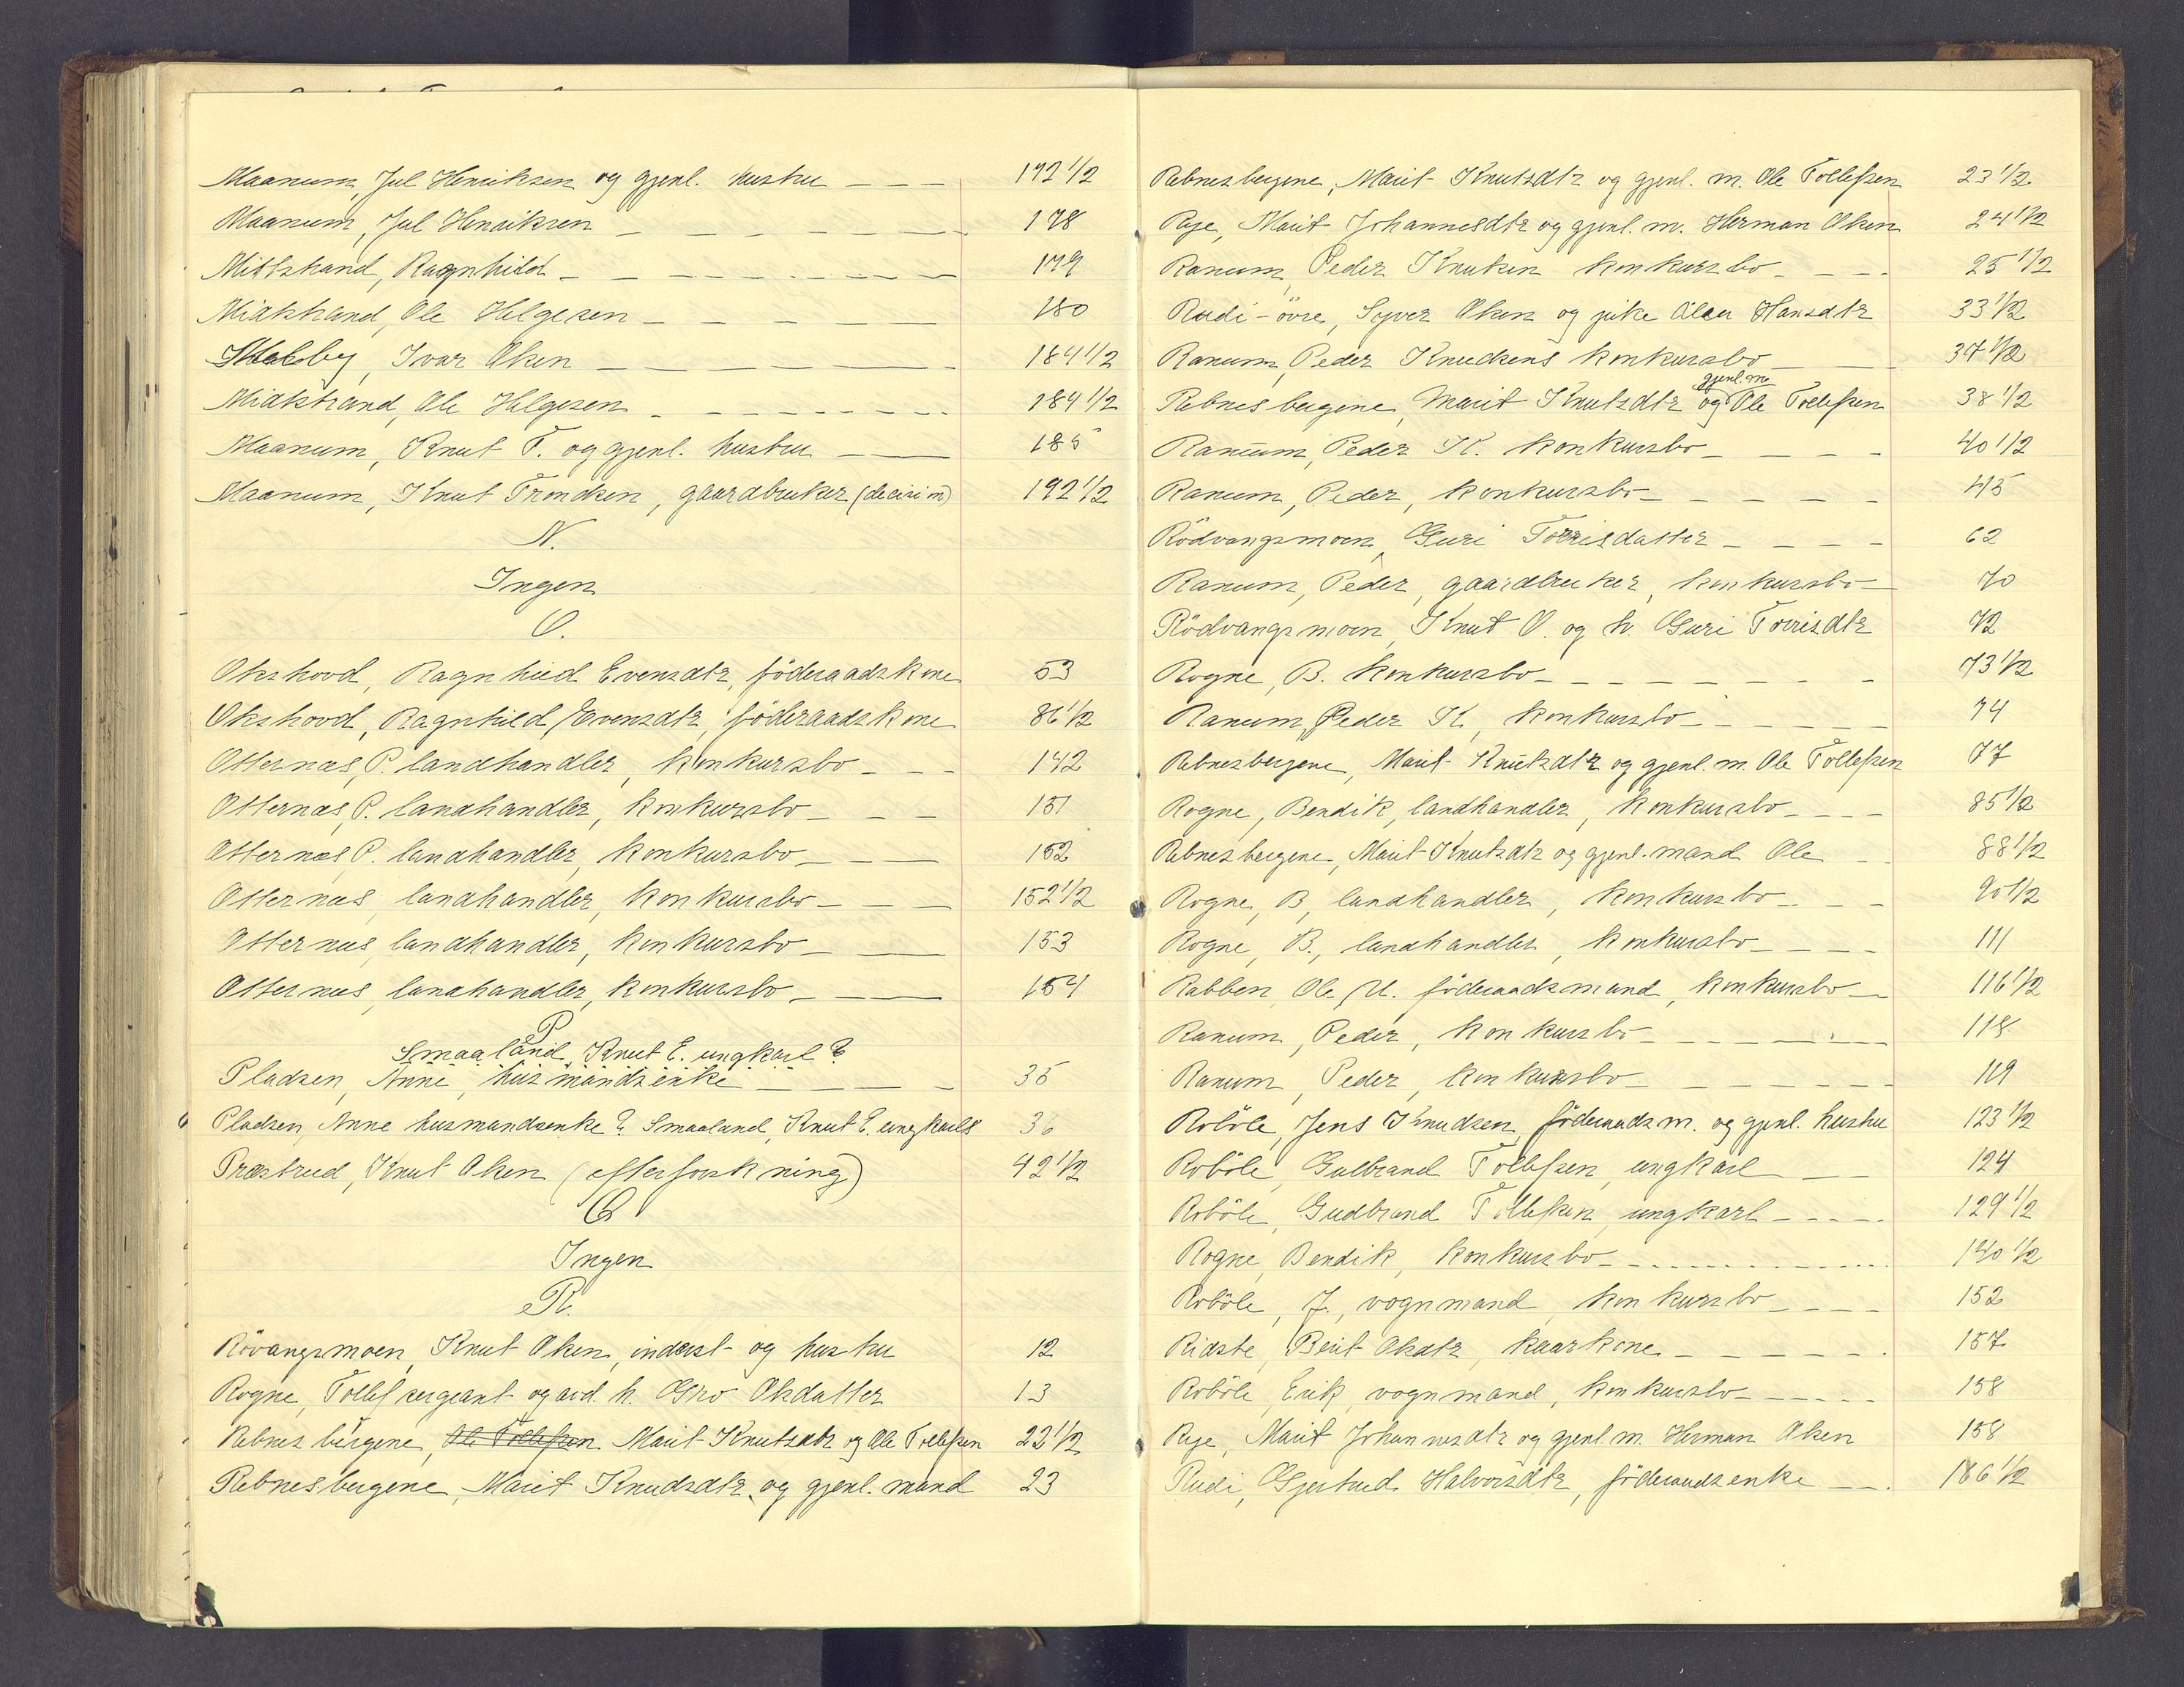 Maanum, Jul Henriksen og gjenl. hustru 172 1/2
Maanum, Jul Henriksen 178
Midtstrand, Ragnhild 179
Midtstrand, Ole Helgesen 180
Melby, Ivar Olsen 184 1/2
Midtstrand, Ole Helgesen 184 1/2
Maanum, Knut T. og gjenl. hustru 185
Maanum, Knut Trondsen, gaardbruker (decisim) 192 1/2
N.
Ingen
O.
Okshovd, Ragnhild Evensdtr, föderaadskone 53
Okshovd, Ragnhild Evensdtr, föderaadskone 86 1/2
Otternæs, P. landhandler, konkursbo 142
Otternæs, P. landhandler, konkursbo 151
Otternæs, P. landhandler, konkursbo 152
Otternæs, landhandler, konkursbo 152 1/2
Otternæs, landhandler, konkursbo 153
Otternæs, landhandler, konkursbo 154
P
Smaaland, Knut E. ungkarl ?
Pladsen, Anne, husmandsenke 35
Pladsen, Anne husmandsenke ? Smaaland, Knut E. ungkarls 36
Præstrud, Knut Olsen (efterforskning) 42 1/2
Q
Ingen
R.
Rövangsmoen, Knut Olsen, inderst og hustru 12
Rogne, Tollef sergeant og avd. h. Gro Olsdatter 13
Rebnesbergene, Ole Tollefsen Marit Knutsdtr og Ole Tollefsen 22 1/2
Rebnesbergene, Marit Knudsdtr. og gjenl. mand 23
Rebnesbergene, Marit Knutsdtr og gjenl. m. Ole Tollefsen 23 1/2
Rye, Marit Johannesdtr og gjenl. m. Herman Olsen 24 1/2
Ranum, Peder Knutsen konkursbo 25 1/2
Rudi-övre, Syver Olsen og pike Hansdtr 33 1/2
Ranum, Peder Knudsens konkursbo 37 1/2
gjenl. m
Rebnesbergene, Marit Knutsdtr og Ole Tollefsen 38 1/2
Ranum, Peder K. konkursbo 40 1/2
Ranum, Peder, konkursbo 45
Rödvangsmoen, Guri Torrisdatter 62
Ranum, Peder, gaardbruker, konkursbo 70
Rödvangsmoen, Knut O. og h. Guri Torrisdtr 72
Rogne, B. konkursbo 73 1/2
Ranum, Peder K, konkursbo 74
Rebnesbergene, Marit Knutsdtr og gjenl. m. Ole Tollefsen 77
Rogne, Bendik, landhandler, konkursbo 85 1/2
Rebnesbergene, Marit Knutsdtr og gjenl. mand Ole 88 1/2
Rogne, B, landhandler, konkursbo 90 1/2
Rogne, B., landhandler, konkursbo 111
Rabben, Ole U. föderaadsmand, konkursbo 116 1/2
Ranum, Peder, konkursbo 118
Ranum, Peder, konkursbo 119
Roböle, Jens Knudsen, föderaadsm. og gjenl. hustru 123 1/2
Roböle, Gulbrand Tollefsen, ungkarl 124
Roböle, Gudbrand Tollefsen, ungkarl 129 1/2
Rogne, Bendik, konkursbo 140 1/2
Roböle, J., vognmand, konkursbo 152
Ridste, Berit Olsdtr, kaarkone 157
Roböle, Erik, vognmand, konkursbo 158
Rye, Marit Johannesdtr og gjenl. m. Herman Olsen 158
Rudi, Gjertrud Halvorsdtr, föderaadsenke 186 1/2